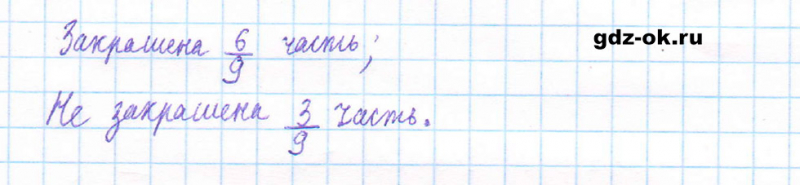 Закрашена 6/9 часть;
gdz-ok.ru
Не закрашена 3/9 часть.